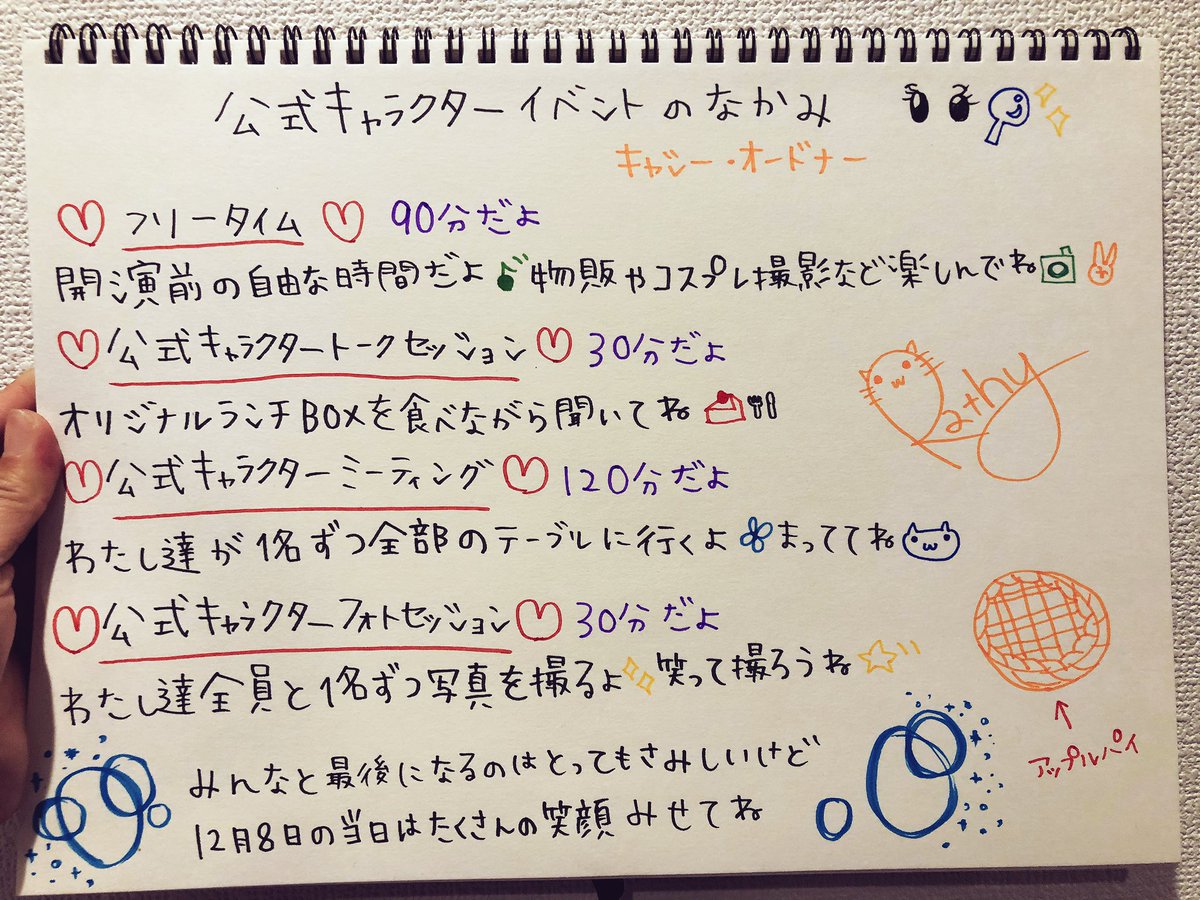 公式キャラクターイベントのなかみ
キャシー・オードナー
フリータイム 90分だよ
開演前の自由な時間だよ 物販やコスプレ撮影など楽しんでね
公式キャラクタートークセッション 30分だよ
オリジナルランチBOXを食べながら聞いてね
Kathy
公式キャラクターミーティング 120分だよ
わたし達が1名ずつ全部のテーブルに行くよ まっててね
公式キャラクターフォトセッション 30分だよ
わたし達全員と1名ずつ写真を撮るよ 笑って撮ろうね
アップルパイ
みんなと最後になるのはとってもさみしいけど
12月8日の当日はたくさんの笑顔みせてね